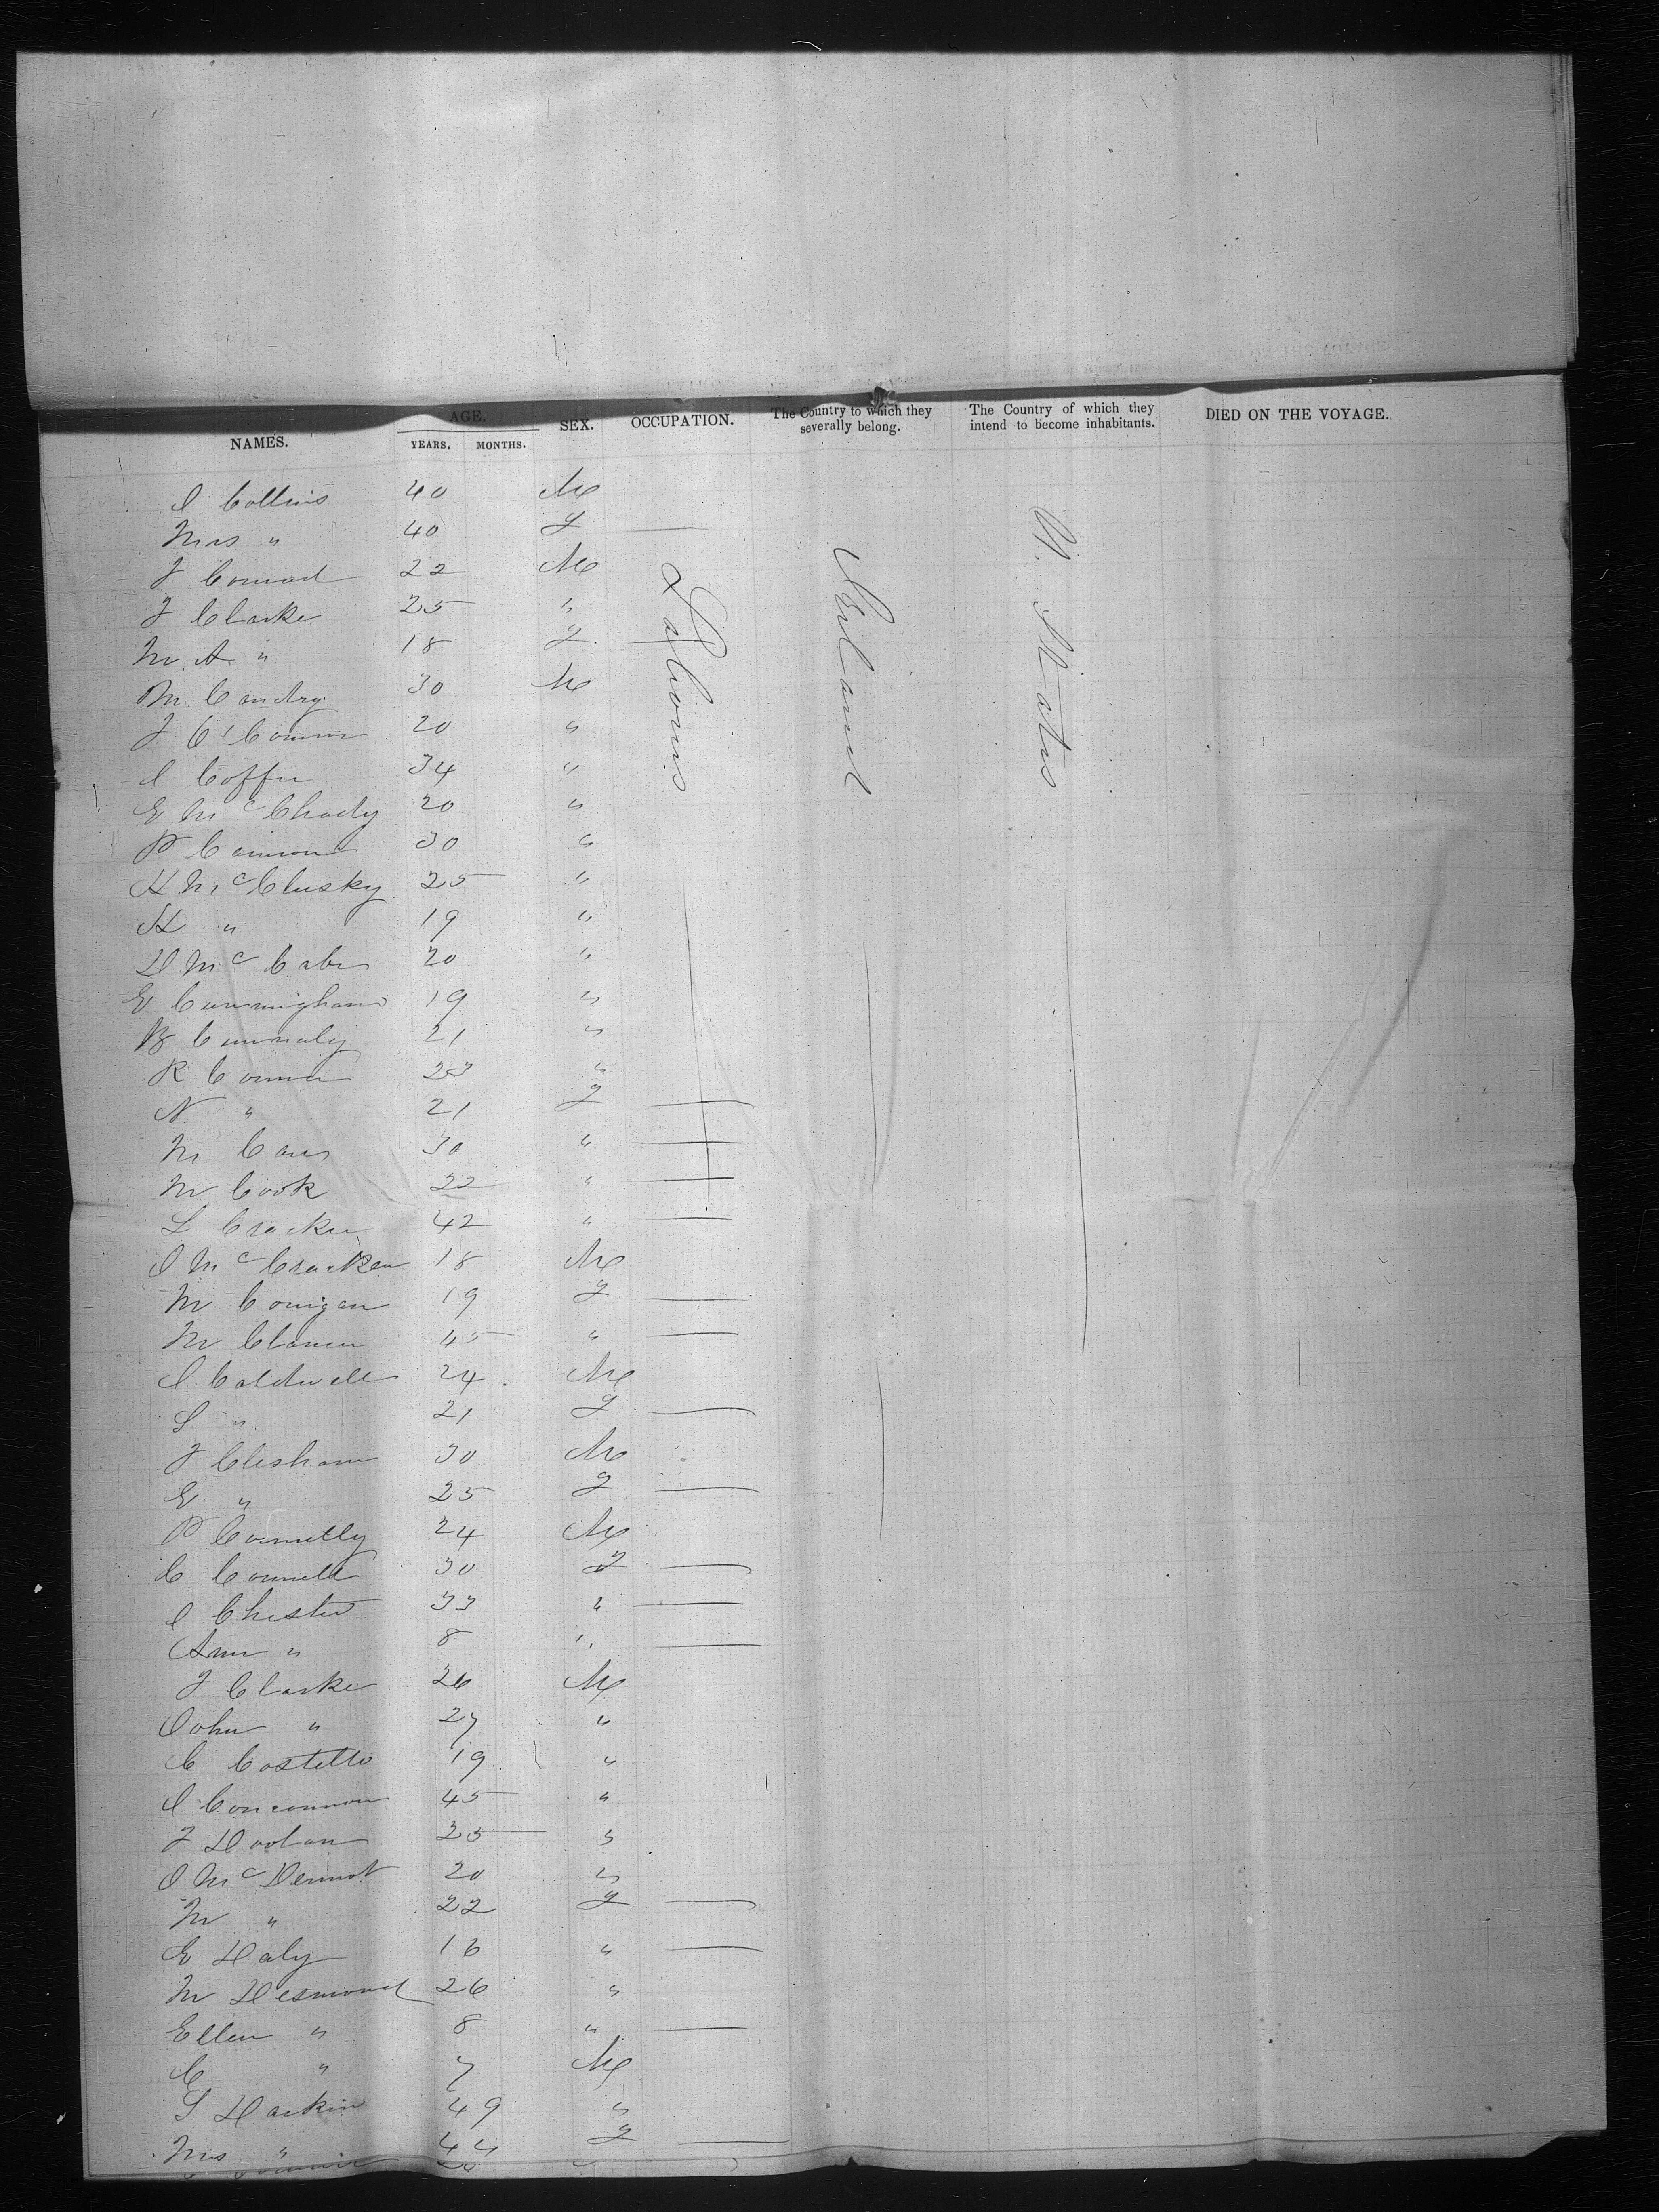 NAMES. AGE. YEARS. MONTHS. SEX. OCCUPATION. The Country to which they severally belong. The Country of which they intend to become inhabitants. DIED ON THE VOYAGE.
Labourers Ireland U. States
J Collins 40 M
Mrs " 40 F —
J Conrad 22 M
J Clarke 25 "
M. A. " 18 F —
M. Condry 30 M
J O'Connor 20 "
J Coffee 34 "
E McChody 20 "
P Cannon 30 "
H McClusky 25 "
H " 19 "
D McCabe 20 "
E Cunningham 19 "
B Cunnaly 21 "
R Connor 23 "
N " 21 F —
M Carr 30 " —
M Cook 22 " —
L Cracken 42 " —
J McCracken 18 M
M Corrigan 19 F —
M Clancen 45 " —
J Caldwell 24 M
S " 21 F —
J Clesham 30 M
E " 25 F —
P Connelly 24 M
C Connell 30 F —
J Chester 33 " —
Ann " 8 " —
J Clarke 26 M
John " 27 "
C Costello 19 "
J Concannon 45 "
J Doolan 25 "
J McDermot 20 "
M " 22 F —
E Daly 16 " —
M Desmond 26 "
Ellen " 8 " —
C " 7 M
S Dackin 49 "
Mrs " 44 F —